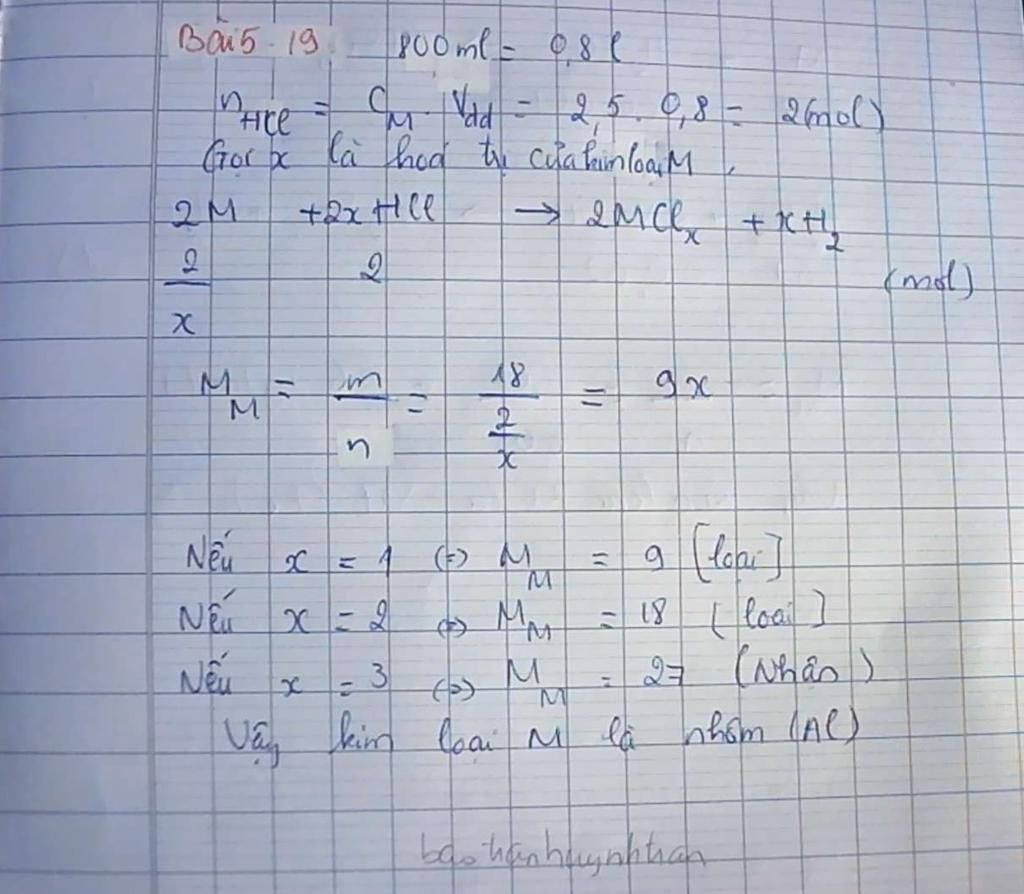 Bài 5.19. 800ml = 0,8 l
n HCl = C M . Vdd = 2,5 . 0,8 = 2(mol)
Gọi x là hoá trị của kim loại M.
2M + 2xHCl → 2MClₓ + xH₂
2/x 2 (mol)
M M = m/n = 18/(2/x) = 9x
Nếu x = 1 (=) M M = 9 [loại]
Nếu x = 2 (=) M M = 18 (loại)
Nếu x = 3 (=) M M = 27 (Nhận)
Vậy kim loại M là nhôm (Al)